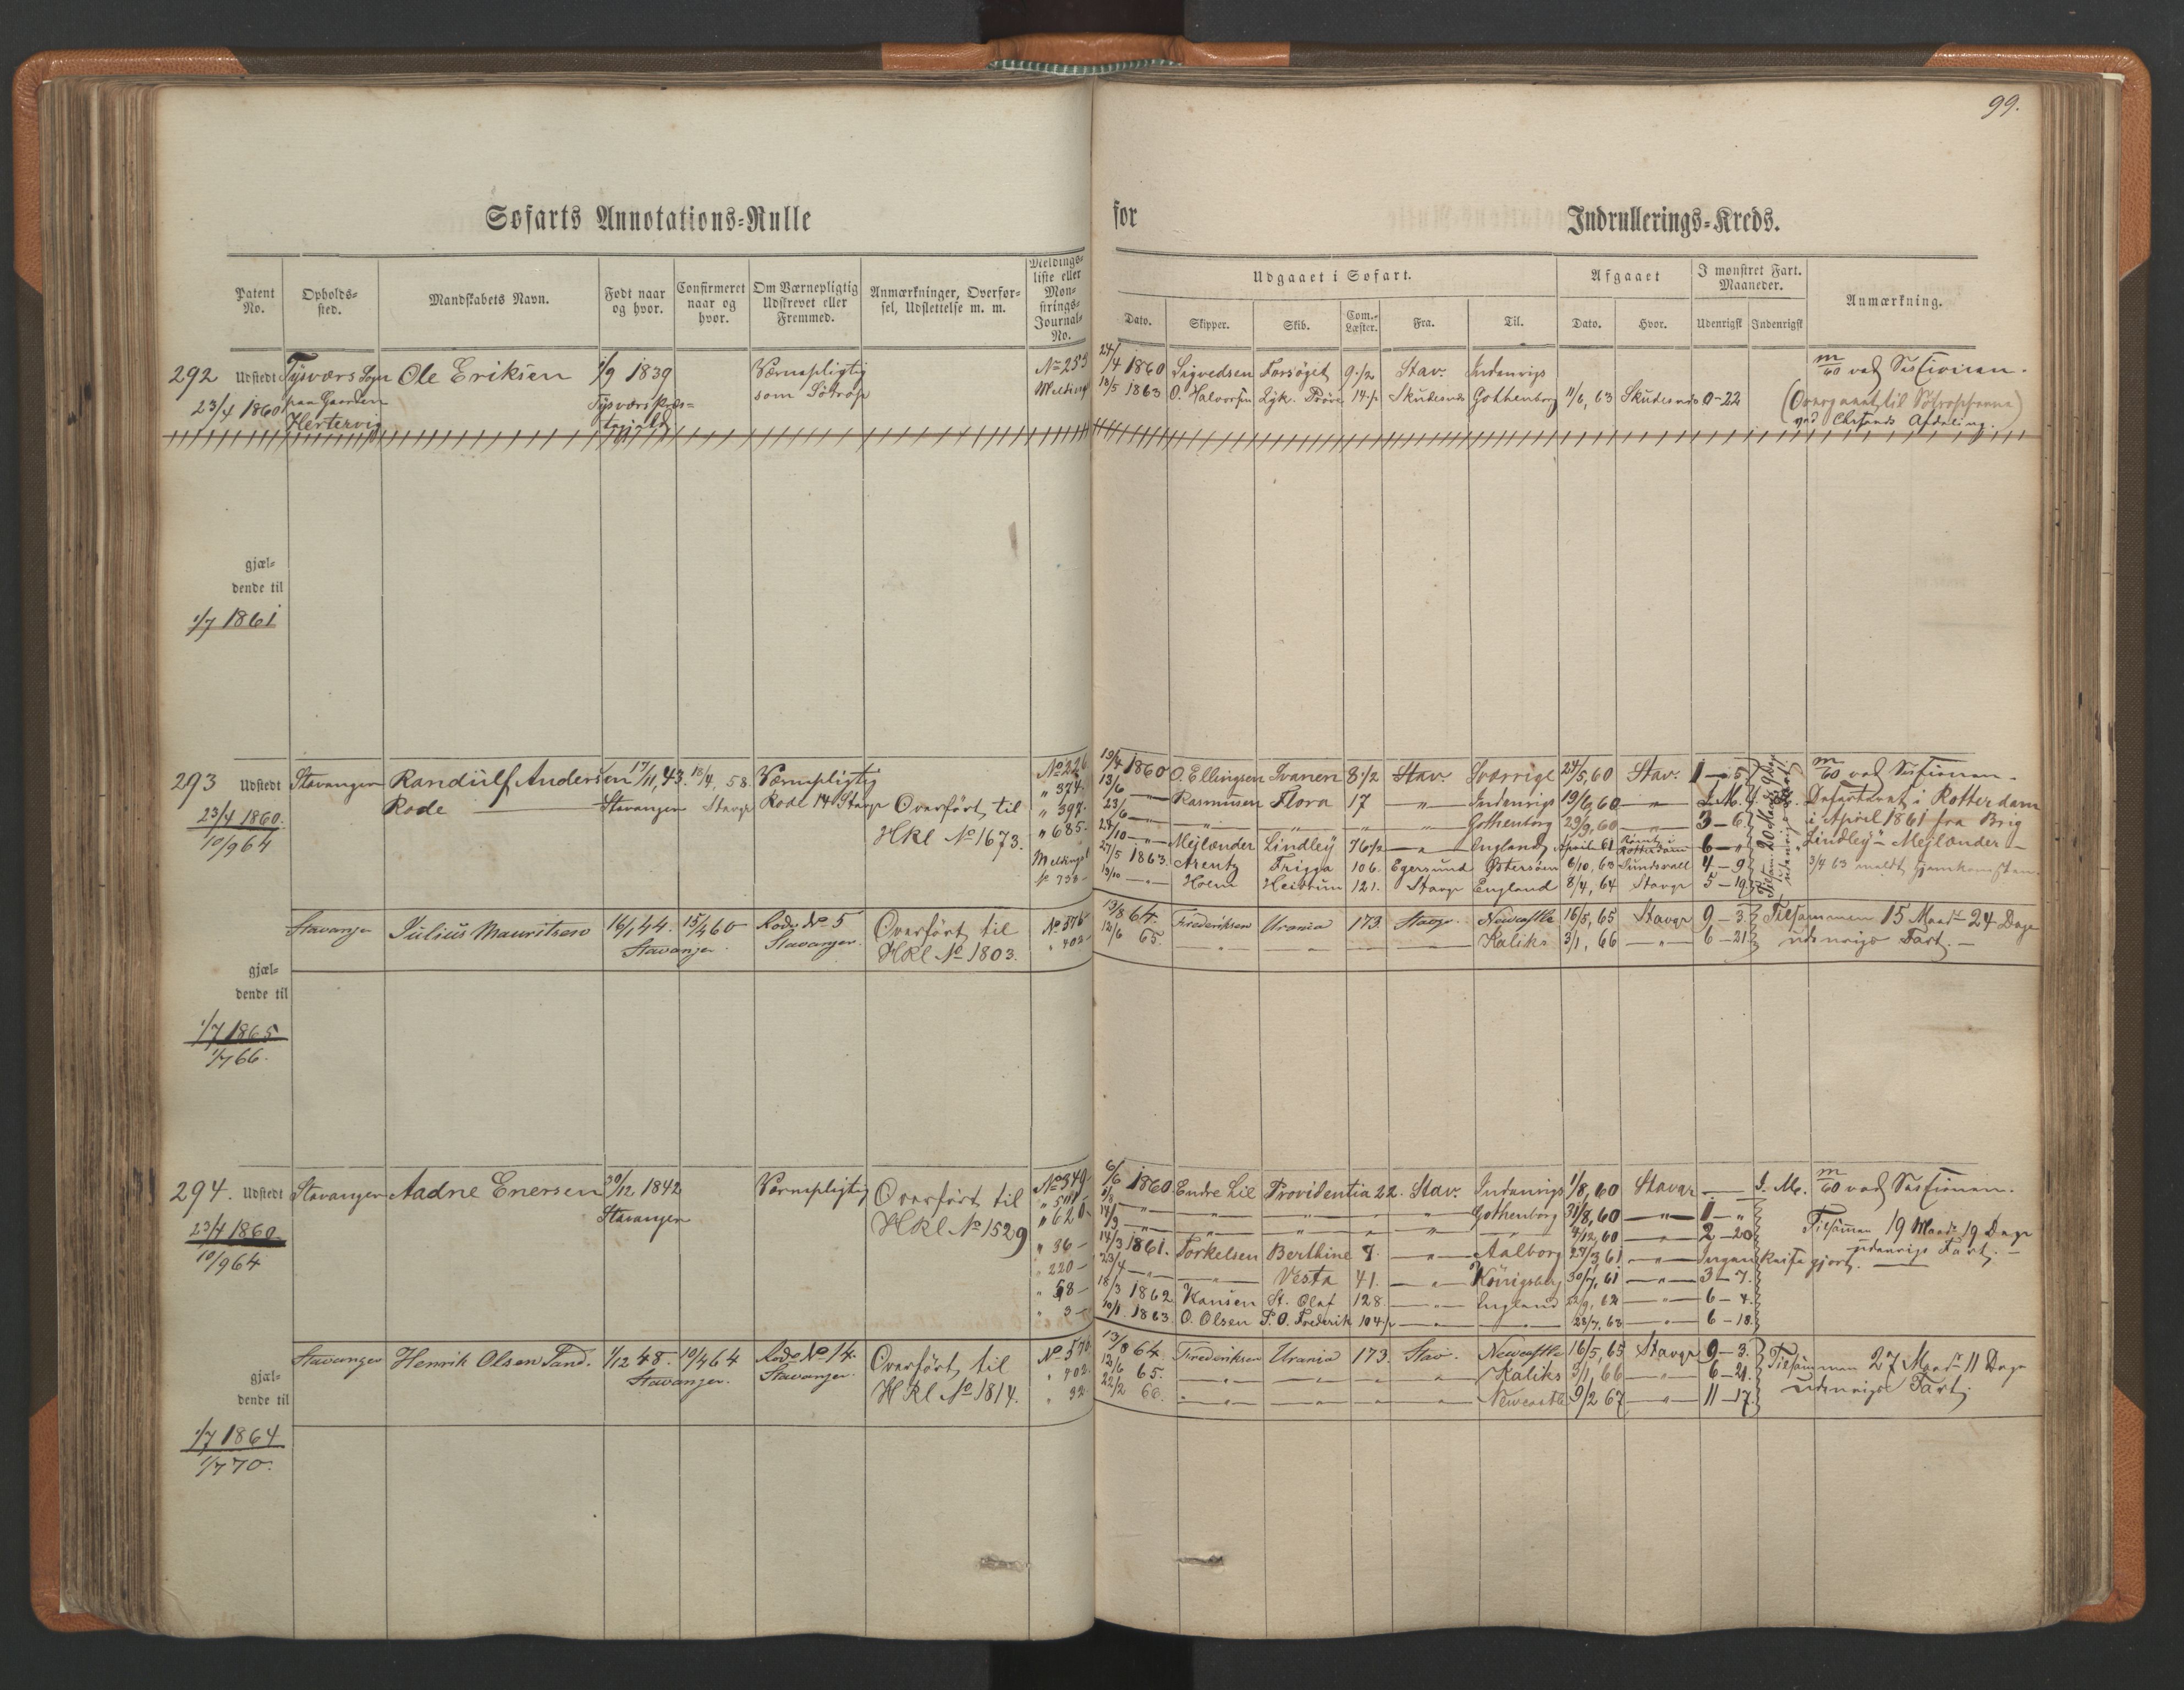 99.
Søfarts Annotations-Rulle for Indrullerings-Kreds.
Patent No.
Opholds-sted.
Mandskabets Navn.
Født naar og hvor.
Confirmeret naar og hvor.
Om Værnepligtig Udskrevet eller Fremmed.
Anmærkninger, Overfør-sel, Udslettelse m. m.
Meldings-liste eller Møn-strings-Journal-No.
Udgaaet i Søfart.
Dato. Skipper. Skib. Com.-Læster. Fra. Til.
Afgaaet
Dato. Hvor.
I mønstret Fart. Maaneder.
Udenrigsk Indenrigsk
Anmærkning.
292 Udstedt Tysværs Sogn Ole Eriksen 1/9 1839 Værnepligtig No 253 24/4 1860 Sigvedsen Forsøget 9 1/2 Stav. Indenrigs m/60 ved Sessionen.
23/4 1860 paa Gaarden Tysværs Præs- som Søtrop Melding 18/5 1863 O. Halvorsen Lgk. Prøve 14 1/2 Skudesnes Gothenborg 11/6, 63 Skudesnes 0-22 (Overgaaet til Søtropperne
Hertervig tegjeld ved Chrsands Afdeling.)
gjæl-
dende til
1/7 1861
293 Udstedt Stavanger Randulf Andersen 17/11, 43. 18/4, 58. Værnepligtig No 226 19/4 1860 O. Ellingsen Svanen 8 1/2 Stav. Sverrige 24/5, 60 Stav. 1-5 m/60 ved Sessionen.
23/4 1860. Rode Stavanger Stavgr Rode 14 Stavgr Overført til " 374. 13/6 — Rasmusen Flora 17 — " — Indenrigs 19/6, 60 — " — I. M. Deserteret i Rotterdam
10/9 64 Hkl No 1673. " 397. 23/6 — " — Gothenborg 29/9, 60 — " — 3-6 i April 1861 fra Brig
" 685. 24/10 — " — Mejlænder Lindley 76 1/2 — " — England April 61 Rømt i Rotterdam 6-" "Lindley" Mejlænder —
Meldingsl. 27/5 1863. Arentz Frigga 106. Egersund Østersøen 6/10, 63 Sundsvall 4-9 3/4 63 meldt hjemkommen.
No 733- 13/10 — " — Holm Heidrun 121. Stavgr England 8/4, 64 Stavgr 5-19
Stavanger Julius Mauritsen 16/1 44. 15/4 60 Rode No 5 Overført til No 576 13/8 64. Frederiksen Urania 173. Stavgr. Newcastle 16/5, 65 Stavgr 9-3. Tilsammen 15 Maandr 24 Dage
Stavanger. Stavanger. Hkl No 1803. " 402. 12/6 65. — " — Kaliks 3/1, 66 — " — 6-21. udenrigs Fart. —
gjæl-
dende til
1/7 1865
1/7 66.
294. Udstedt Stavanger Aadne Enersen 30/12 1842 Værnepligtig Overført til No 349 6/6 1860 Endre Lie Providentia 22. Stav. Indenrigs 1/8, 60 Stavgr — I. M. m/60 ved Sessionen.
23/4 1860. Stavanger Hkl No 1529 — " — Gothenborg 31/8, 60 — " — 1-" Tilsammen 19 Maandr 19 Dage
10/9 64 " 620. 14/9 — " — 4/12, 60 — " — 2-20 udenrigs Fart. —
" 36- 14/3 1861. Torkelsen Berthine 7. — " — Aalborg 27/3, 61 — " — Ingen Reise gjort.
" 220- 23/4 — " — Vesta 41. — " — Königsberg 30/7, 61 — " — 3-7.
" 58- 18/3 1862 Hansen St. Olaf 128. — " — England 22/9, 62 — " — 6-4.
" 3- 10/1. 1863. O. Olsen P. O. Frederik 104 1/2 — " — 28/7, 63 — " — 6-18.
Stavanger Henrik Olsen Sand. 1/12 48. 10/4 64 Rode No 14. Overført til No 576 13/8 64. Frederiksen Urania 173. Stav. Newcastle 16/5, 65 Stavgr 9-3. Tilsammen 27 Maandr 11 Dage
Stavanger. Stavanger. Hkl No 1814. " 402. 12/6 65. — " — Kaliks 3/1, 66 — " — 6-21. udenrigs Fart.
" 32. 22/2 66. — " — Newcastle 9/2 67 — " — 11-17.
gjæl-
dende til
1/7 1864
1/7 70.